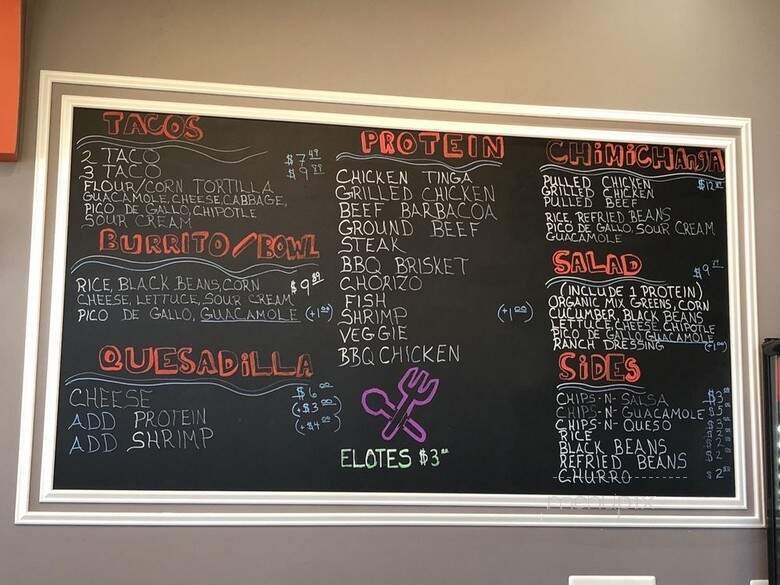 TACOS
2 TACO $7 49
3 TACO $9
FLOUR/CORN TORTILLA
GUACAMOLE, CHEESE, CABBAGE,
PICO DE GALLO, CHIPOTLE
SOUR CREAM
BURRITO/BOWL
RICE, BLACK BEANS, CORN $9
CHEESE, LETTUCE, SOUR CREAM
PICO DE GALLO, GUACAMOLE
QUESADILLA
CHEESE $6 00
ADD PROTEIN (+$3 00)
ADD SHRIMP (+$4 00)
PROTEIN
CHICKEN TINGA
GRILLED CHICKEN
BEEF BARBACOA
GROUND BEEF
STEAK
BBQ BRISKET
CHORIZO
FISH
SHRIMP (+1 00)
VEGGIE
BBQ CHICKEN
ELOTES $3
CHiMiCHANGA
PULLED CHICKEN $12
GRILLED CHICKEN
PULLED BEEF
RICE, REFRIED BEANS
PICO DE GALLO, SOUR CREAM
GUACAMOLE
SALAD $9
(INCLUDE 1 PROTEIN)
ORGANIC MIX GREENS, CORN
CUCUMBER, BLACK BEANS
LETTUCE, CHEESE, CHIPOTLE
PICO DE GALLO, GUACAMOLE
RANCH DRESSING
SiDES
CHIPS-N-SALSA $3
CHIPS-N-GUACAMOLE $5
CHIPS-N-QUESO
RICE
BLACK BEANS
REFRIED BEANS
CHURRO $2